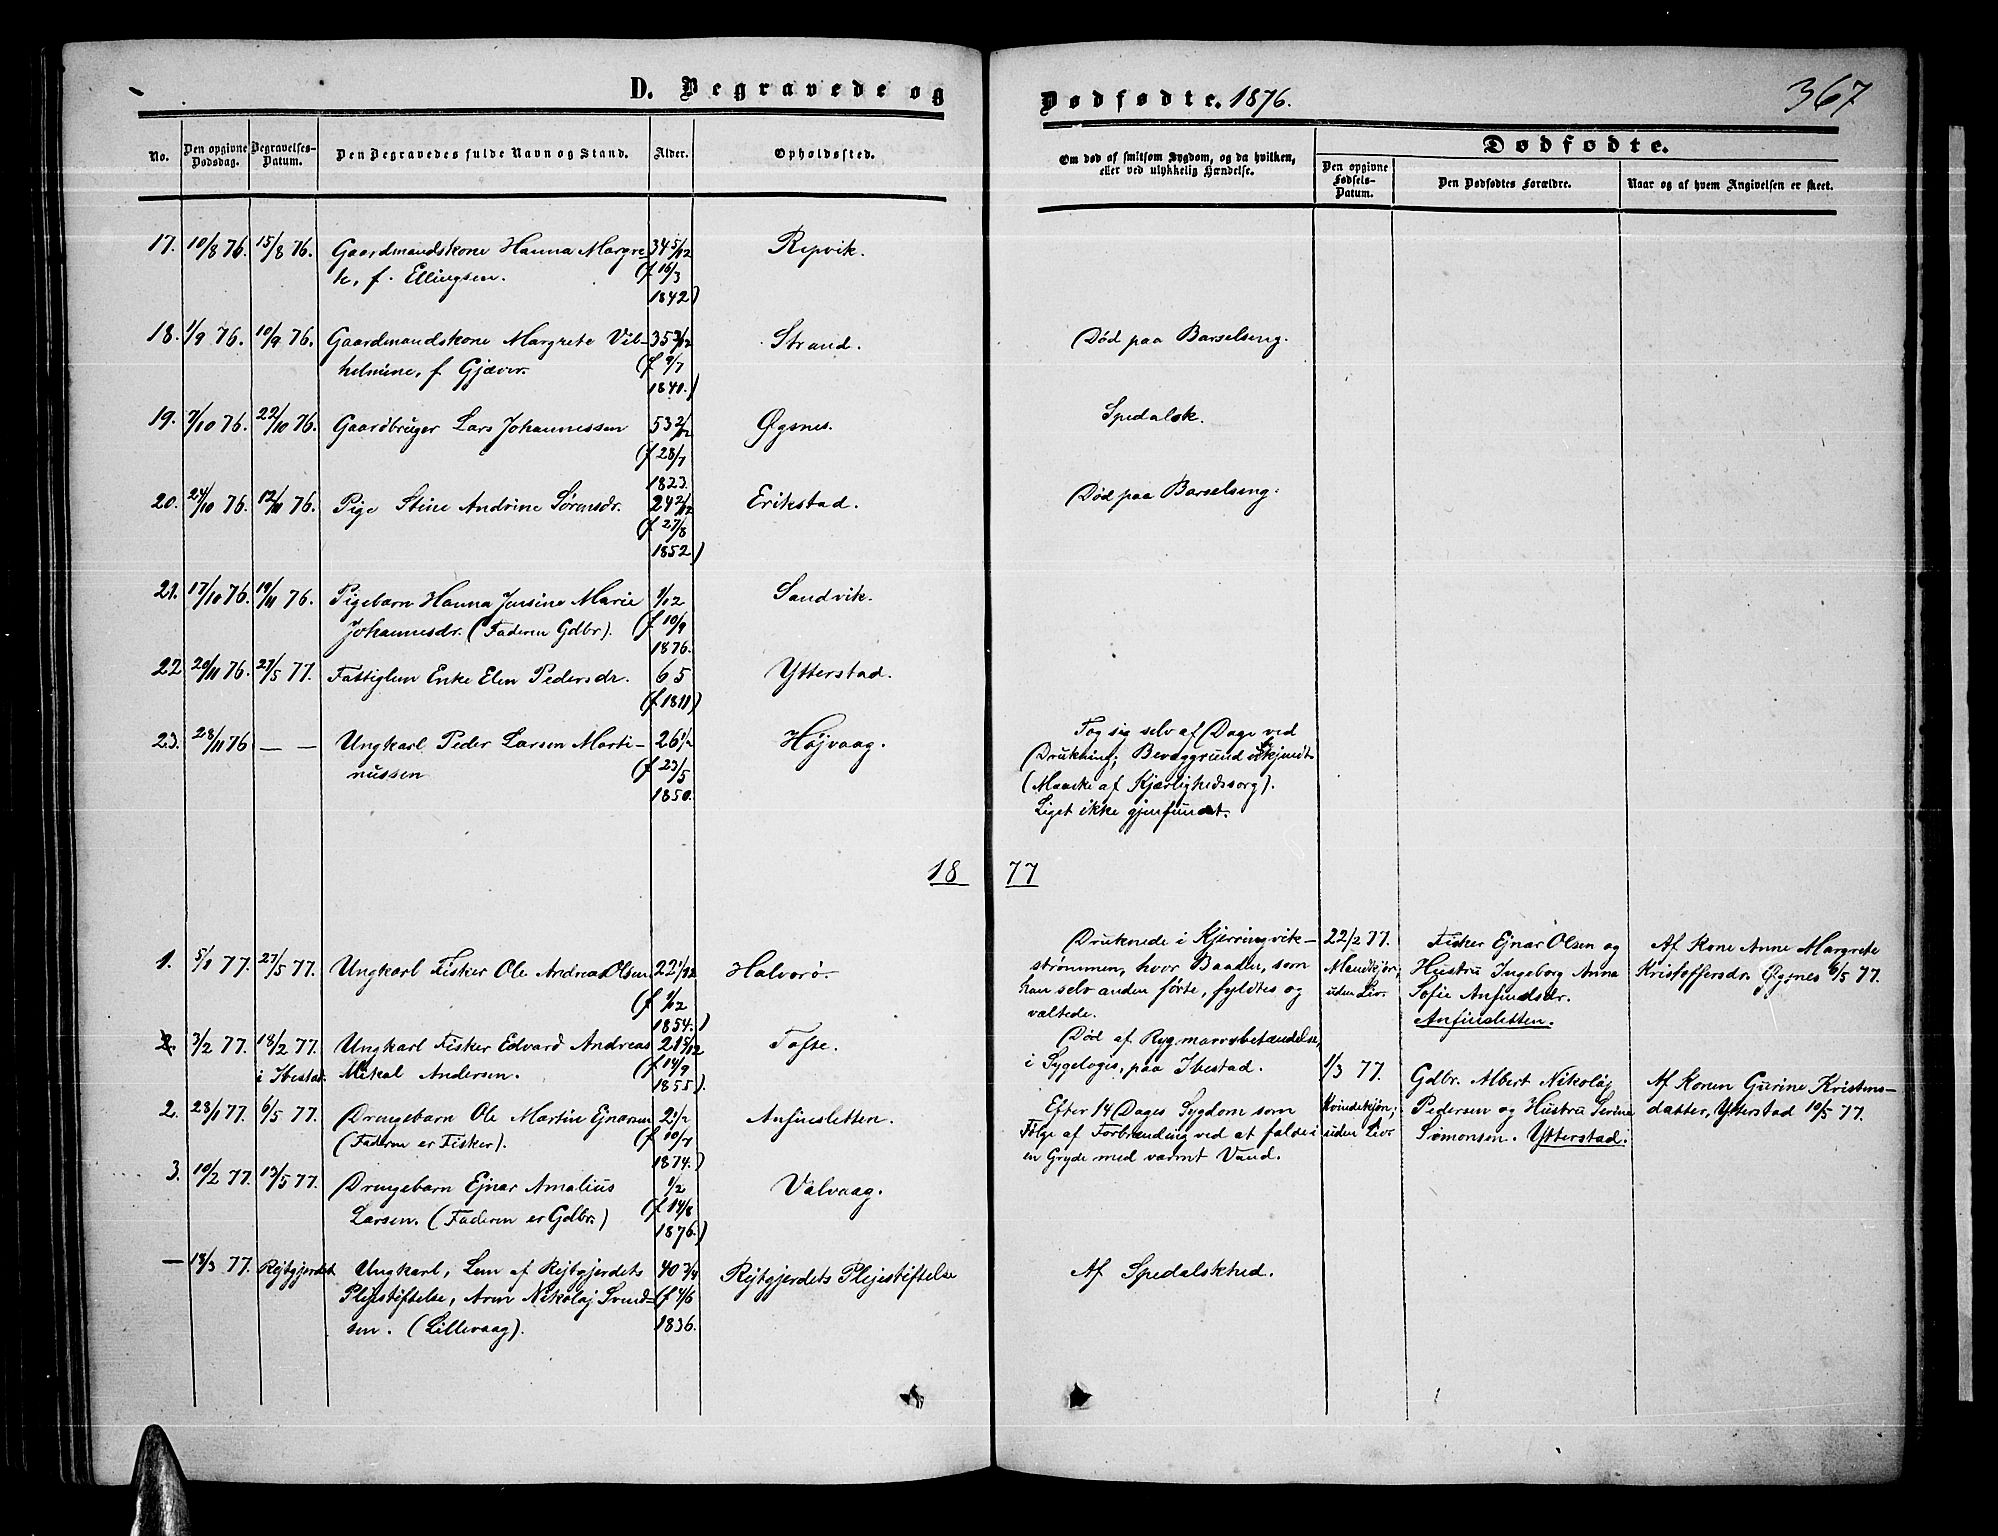 D. Begravede og Dødfødte. 1876. 367
No. Den opgivne Dødsdag. Begravelses-Datum. Den Begravedes fulde Navn og Stand. Alder. Opholdssted. Om død af smitsom Sygdom, og da hvilken, eller ved ulykkelig Hændelse. Dødfødte.
Den opgivne Fødsels-Datum. Den Dødfødtes Forældre. Naar og af hvem Angivelsen er skeet.
17. 10/8 76. 15/8 76. Gaardmandskone Hanna Margre- 34 5/12 Repvik.
te, f. Ellingsen. (f 16/3
1842)
18. 1/9 76. 10/9 76. Gaardmandskone Margrete Vil- 35 3/12 Strand. Død paa Barselseng.
helmine, f. Gjæver. (f 9/7
1841.)
19. 7/10 76. 22/10 76. Gaardbruger Lars Johannessen 53 2/12 Øgsnes. Spedalsk.
(f 28/7
1823.
20. 24/10 76. 12/11 76. Pige Stine Andrine Sørensdr. 24 2/12 Erikstad. Død paa Barselseng.
(f 27/8
1852)
21. 17/10 76. 19/11 76. Pigebarn Hanna Jensine Marie 1/12 Sandvik.
Johannesdr. (Faderen Gdbr). (f 10/9
1876.
22 20/11 76. 27/5 77. Fattiglem Enke Elen Pedersdr. 65 Ytterstad.
(f 1811)
23. 28/11 76 — — Ungkarl Peder Larsen Marti- 26 1/2 Højvaag. Tog sig selv af Dage ved
nussen (f 23/5 Drukning; Bevæggrund uskjendt
1850. (Maaske af Kjærlighedssorg).
Liget ikke gjenfundet.
18 77
1. 5/1 77. 27/5 77. Ungkarl Fisker Ole Andreas Olsen 22 1/12 Halvorø. Druknede i Kjerringvik-
(f 1/12 strømmen, hvor Baaden, som
1854.) han selv anden førte, fyldtes og
væltede.
22/2 77. Fisker Ejnar Olsen og Af Kone Anne Margrete
Mandkjøn; Hustru Ingeborg Anna Kristoffersdr. Øgsnes 6/5 77.
uden Liv. Sofie Anfindsdr.
Anfinsletten.
2. 3/2 77. 18/2 77. Ungkarl Fisker Edvard Andreas 21 5/12 Tofte. Død af Rygmarvsbetændelse,
i Ibestad. Mikal Andersen. (f 14/9 i Sygeloges, paa Ibestad.
1855).
1/3 77. Gdbr. Albert Nikolaj Af Konen Gurine Kristens-
Kvindekjøn; Pedersen og Hustru Serine datter, Ytterstad 10/5 77.
uden Liv Simonsen. Ytterstad.
2. 28/1 77. 6/5 77. Drengebarn Ole Martin Ejnarsen 2 1/2 Anfinsletten. Efter 14 Dages Sygdom som
(Faderen er Fisker). (f 10/7 Følge af Forbrænding ved at falde i
1874.) en Gryde med varmt Vand.
3. 10/2 77. 13/5 77. Drengebarn Ejnar Amalius 1/2 Valvaag.
Larsen. (Faderen er Gdbr.) (f 14/8
1876.)
— 18/3 77. Rejtgjerdet Ungkarl, Lem af Rejtgjerdets 40 3/4 Rejtgjerdets Plejestiftelse Af Spedalskhed.
Plejestiftelse, Arn Nikolaj Svend- (f 4/6
sen. (Lillevaag). 1836.